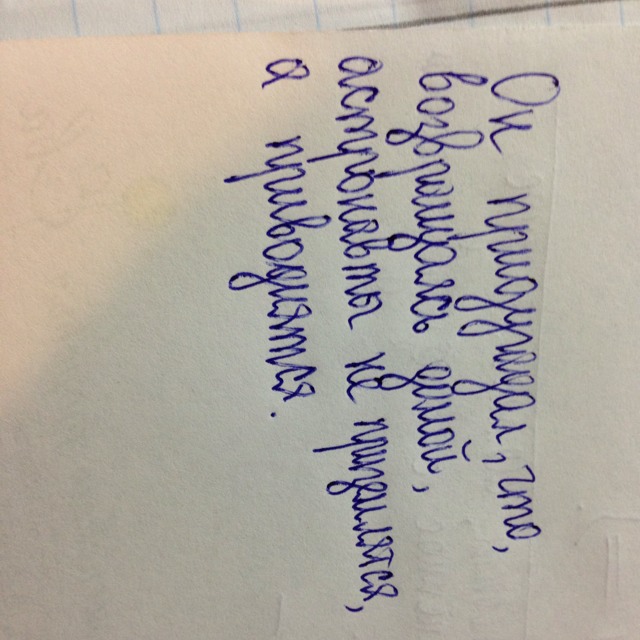 Он придугадал, что,
возвращаясь домой,
астронавты не приземлятся,
а приводнятся.